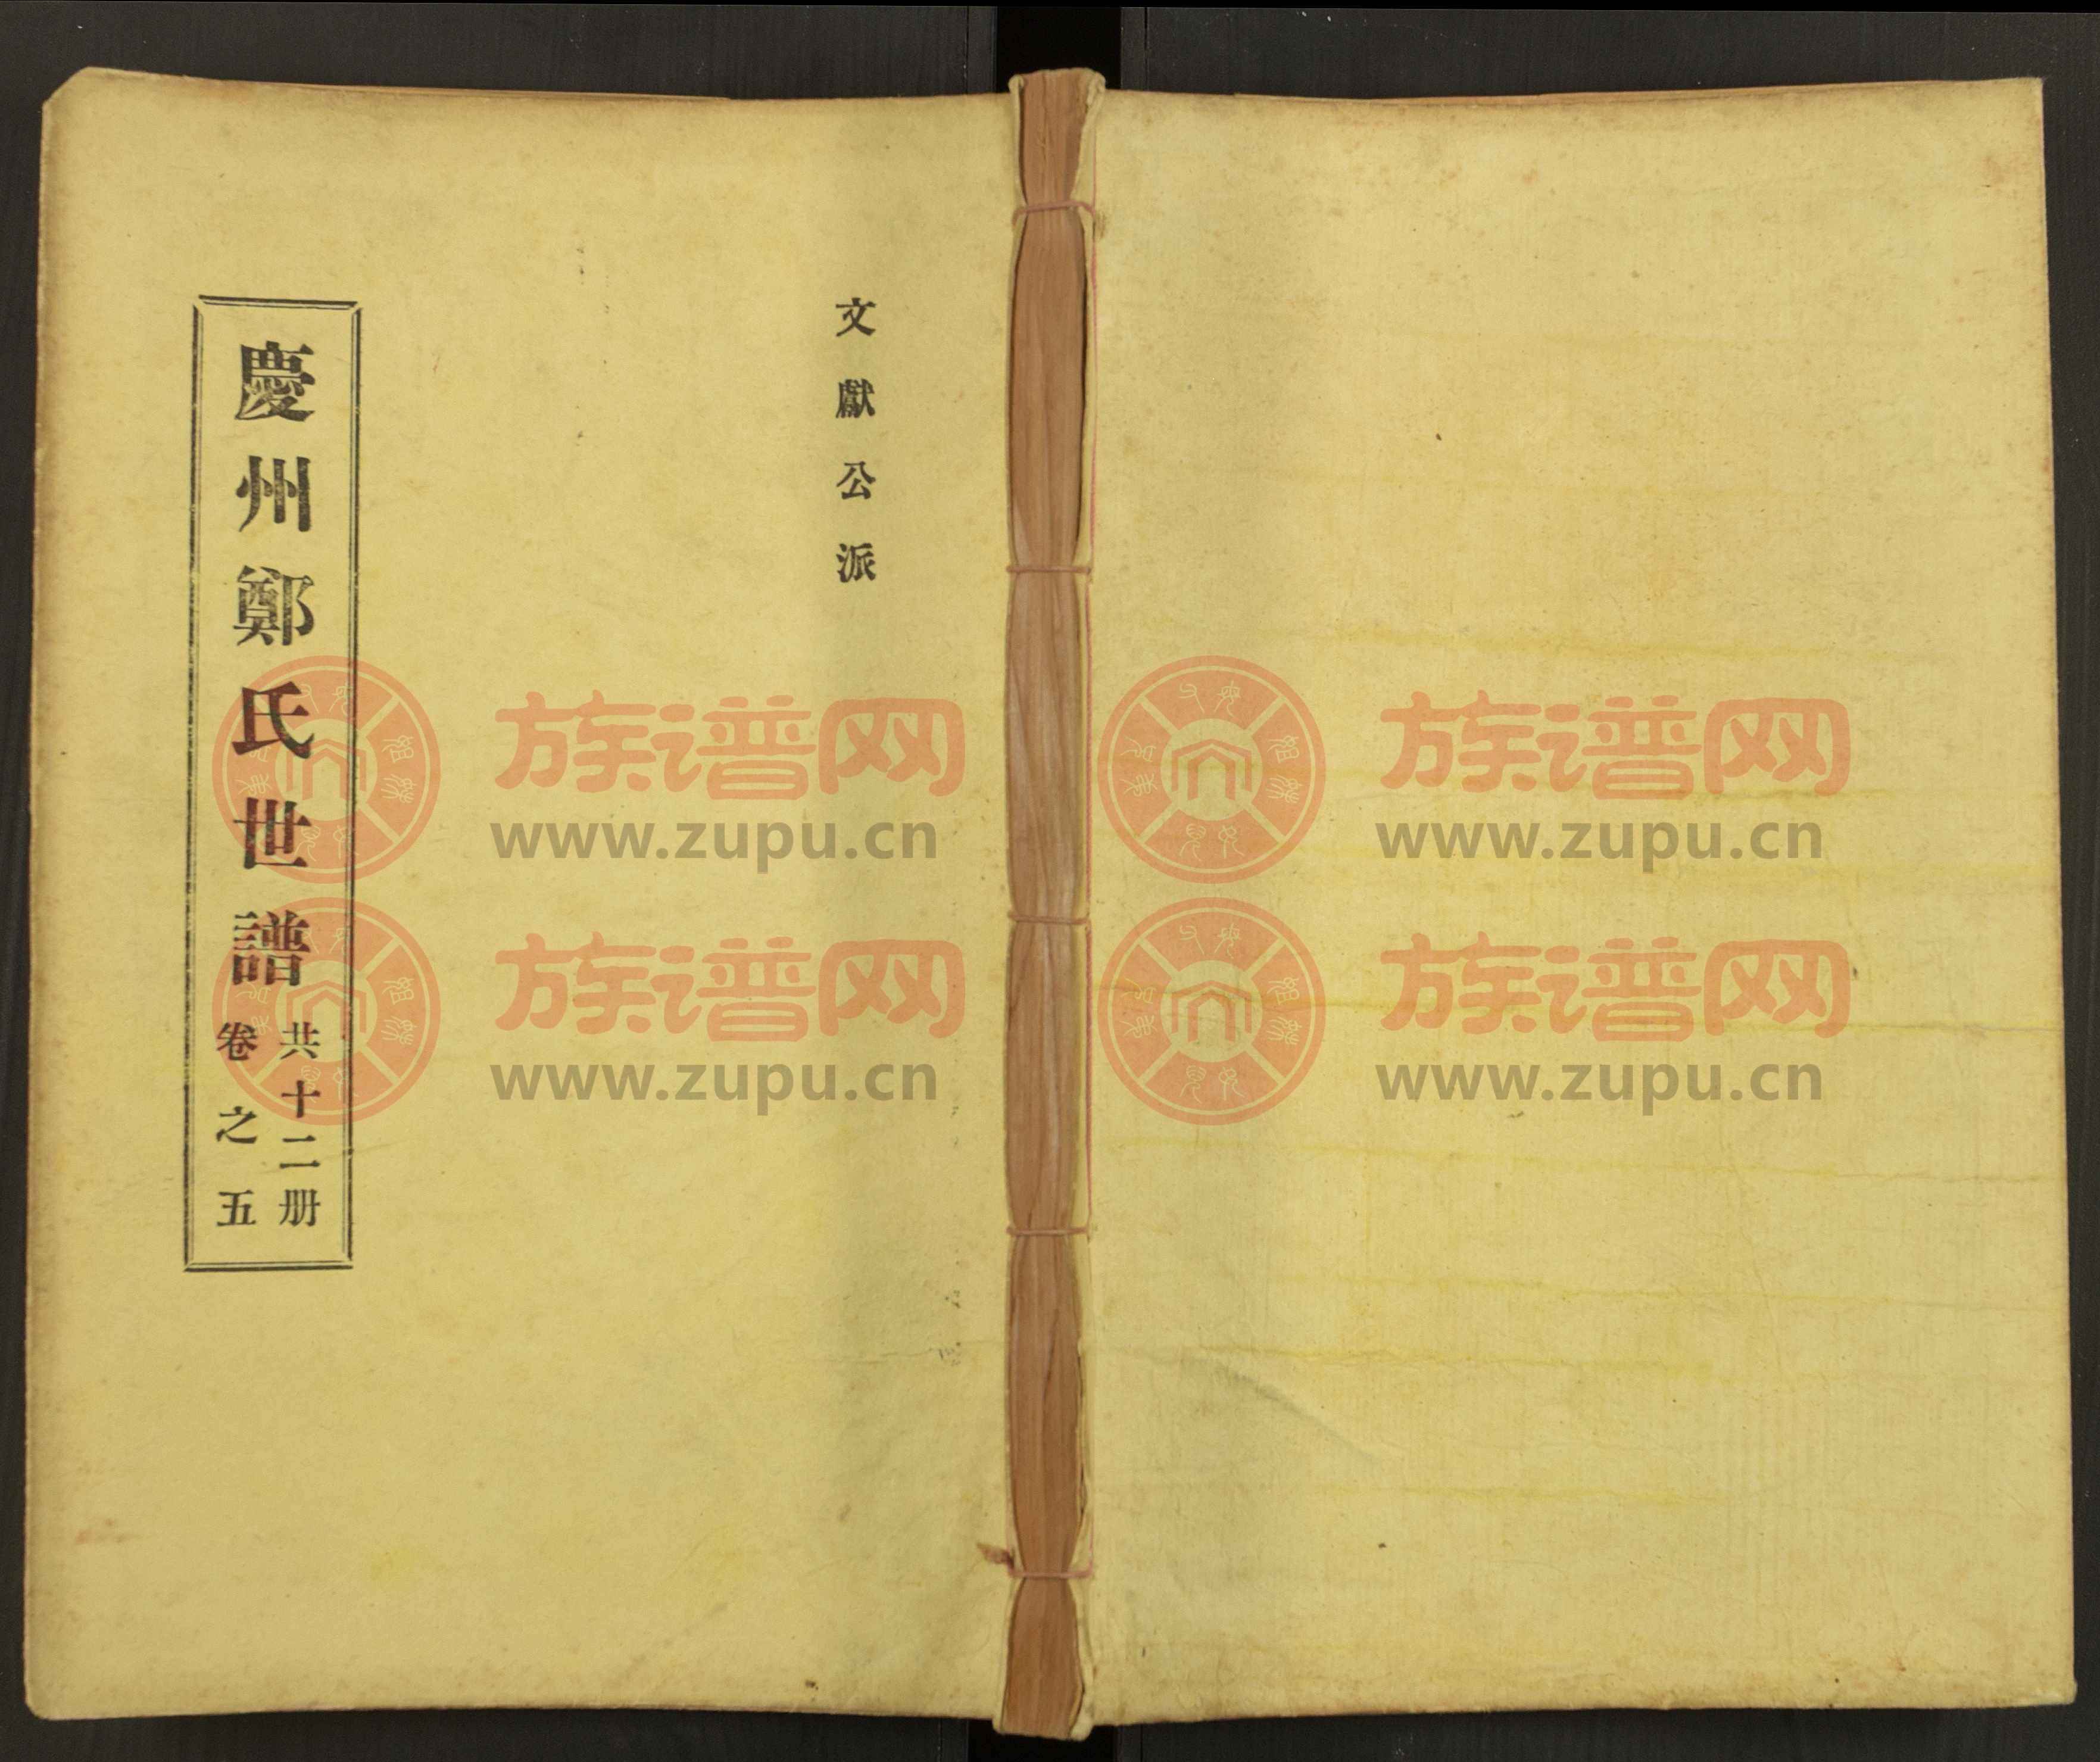 文獻公派
慶州鄭氏世譜
共十二册
卷之五
族谱网
www.zupu.cn
族谱网
www.zupu.cn
族谱网
www.zupu.cn
族谱网
www.zupu.cn